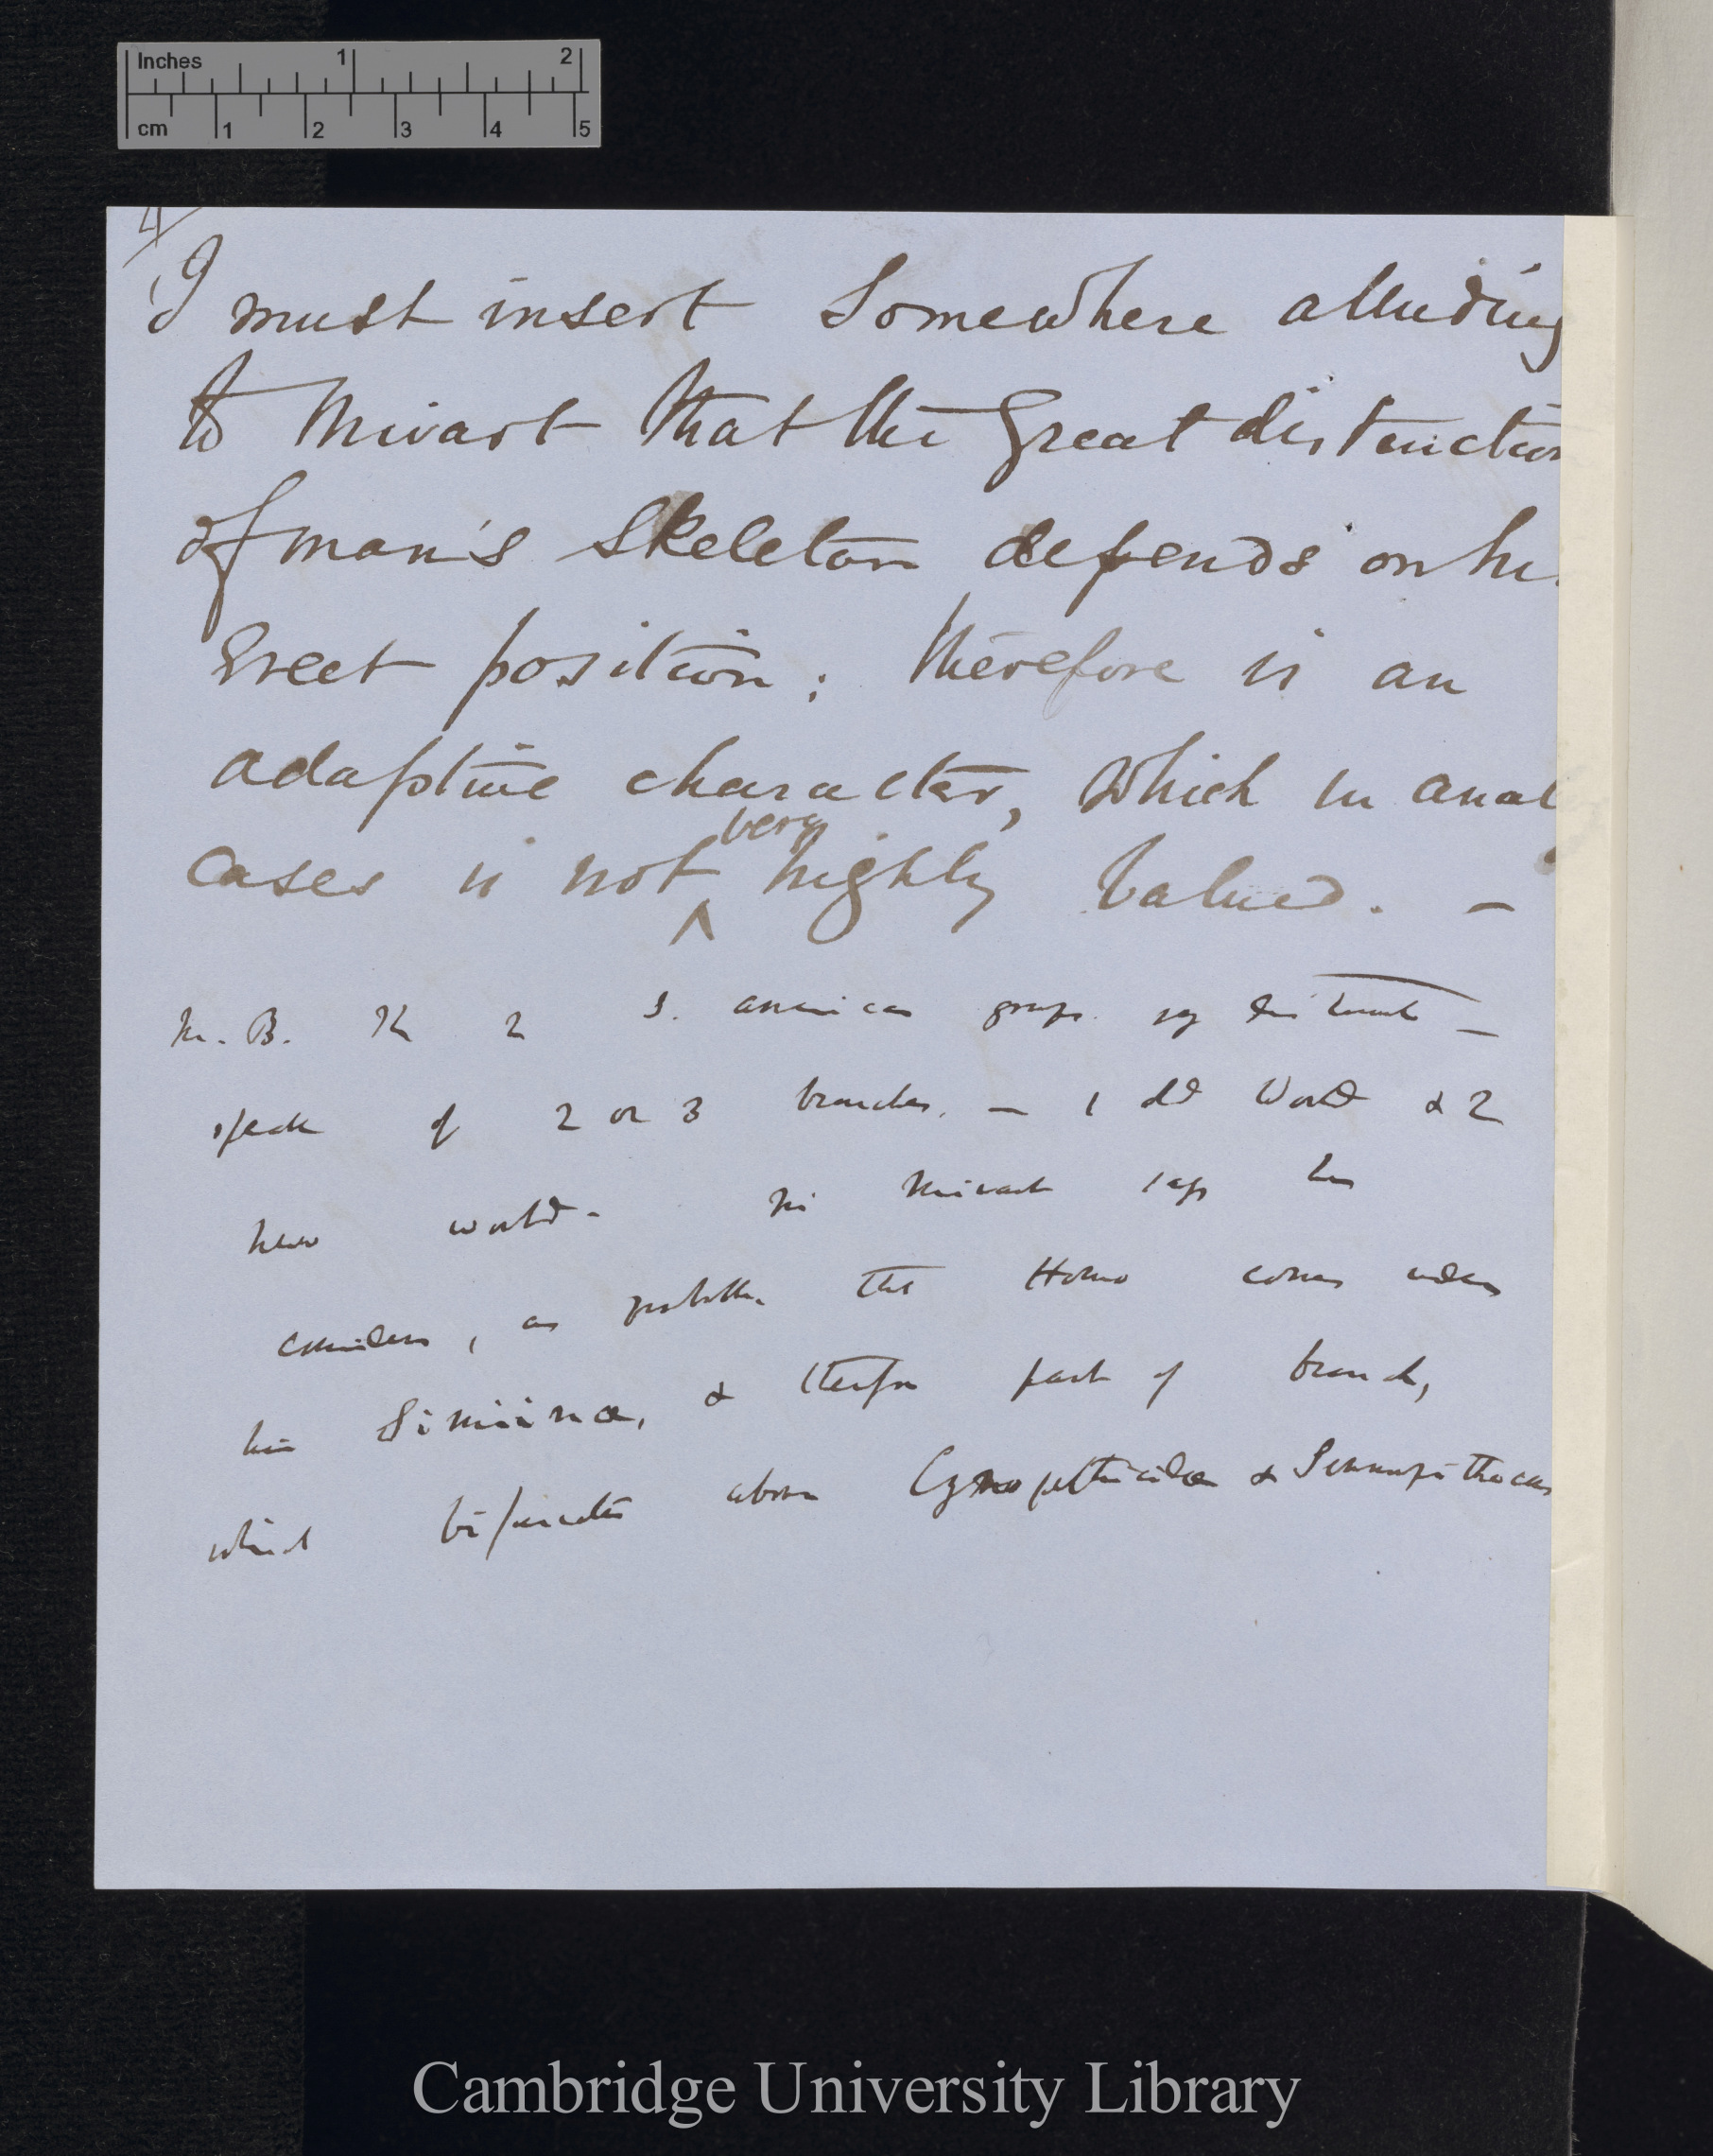 Inches 1 2
cm 1 2 3 4 5
4/
I must insert Somewhere alluding
to Mivart that the Great distinction
of man's Skeleton depends on his
Erect position; therefore is an
adaptive character, which in anal
very
cases is not ^ highly Valued. —
N.B. The 2 S. American groups. so distinct —
speak of 2 or 3 branches. — 1 old World & 2
new world. — Mr Mivart says he
considers, as probable that Homo comes under
his Simiinæ, & therefore part of branch,
which bifurcates above Cynopithecidæ & Semnopithecus
Cambridge University Library